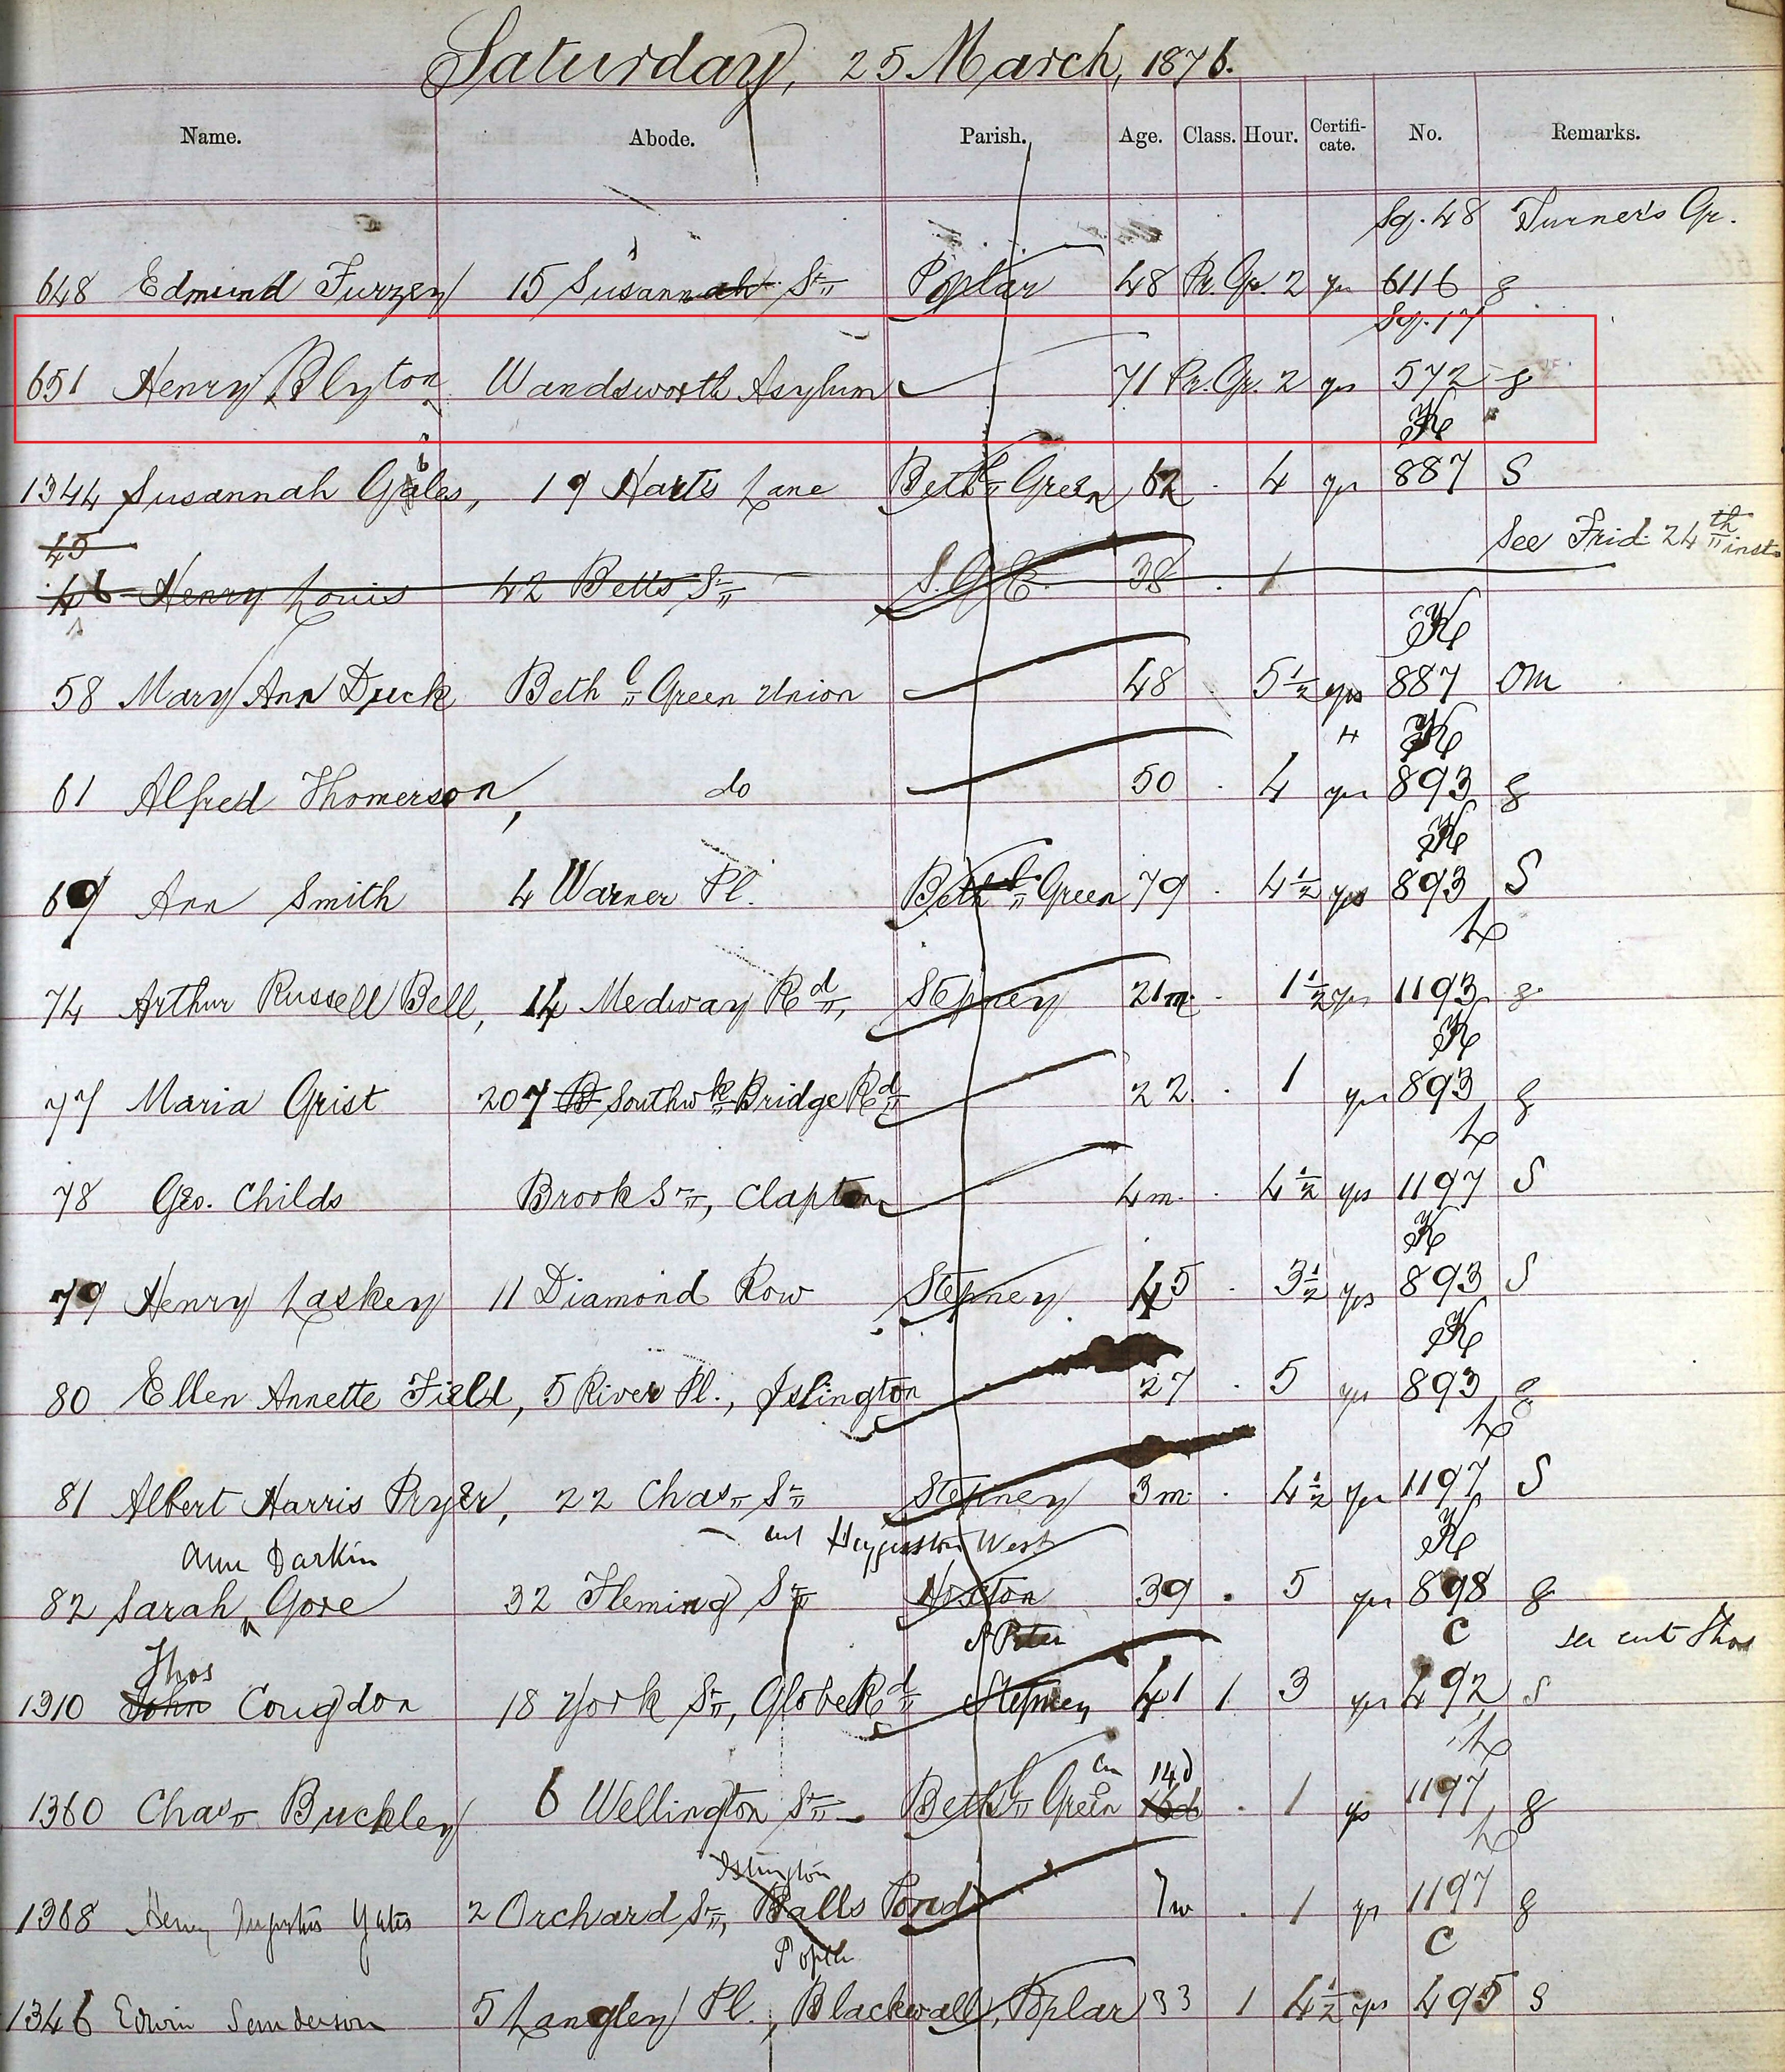 Saturday, 25 March, 1876.
Name. Abode. Parish. Age. Class. Hour. Certifi-cate. No. Remarks.
Sq. 48 Turner's Gr.
648 Edmund Furzey 15 Susannah St Poplar 48 Pr. Gr. 2 yes 6116 g
Sq. 17
651 Henry Blyton Wandsworth Asylum 71 Pr. Gr. 2 yes 572 g
K
1344 Susannah Gales, 19 Harts Lane Bethl Green 62 . 4 yes 887 S
45 See Frid. 24th inst.
46 Henry Louis 42 Betts St S.G.E. 38 . 1
K
58 Mary Ann Duck Bethl Green Union 48 . 5½ yes 887 Om
K
61 Alfred Thomerson, do 50 . 4 yes 893 g
K
69 Ann Smith 4 Warner Pl. Bethl Green 79 . 4½ yes 893 S
L
74 Arthur Russell Bell, 14 Medway Rd, Stepney 21m . 1½ yes 1193 g
K
77 Maria Grist 207 Southwk Bridge Rd 22 . 1 yes 893 g
L
78 Geo. Childs Brook St, Clapton 4m . 4½ yes 1197 S
K
79 Henry Laskey 11 Diamond Row Stepney 45 . 3½ yes 893 S
K
80 Ellen Annette Field, 5 River Pl., Islington 27 . 5 yes 893 g
L
81 Albert Harris Pryer, 22 Chas St Stepney 3m . 4½ yes 1197 S
Ann Darkin West K
82 Sarah Gore 32 Fleming St Hoxton 39 . 5 yes 898 g
Thos St Peter C see cert Thos
1310 John Congdon 18 York St, Globe Rd Stepney 41 1 3 yes 492 S
14d L
1360 Chas Buckley 6 Wellington St Bethl Green 16d . 1 yes 1197 g
Islington L
1368 Henry Augustus Yates 2 Orchard St, Balls Pond 7w . 1 yes 1197 g
C
1346 Edwin Sanderson 5 Langley Pl., Blackwall, Poplar 33 1 4½ yes 495 S